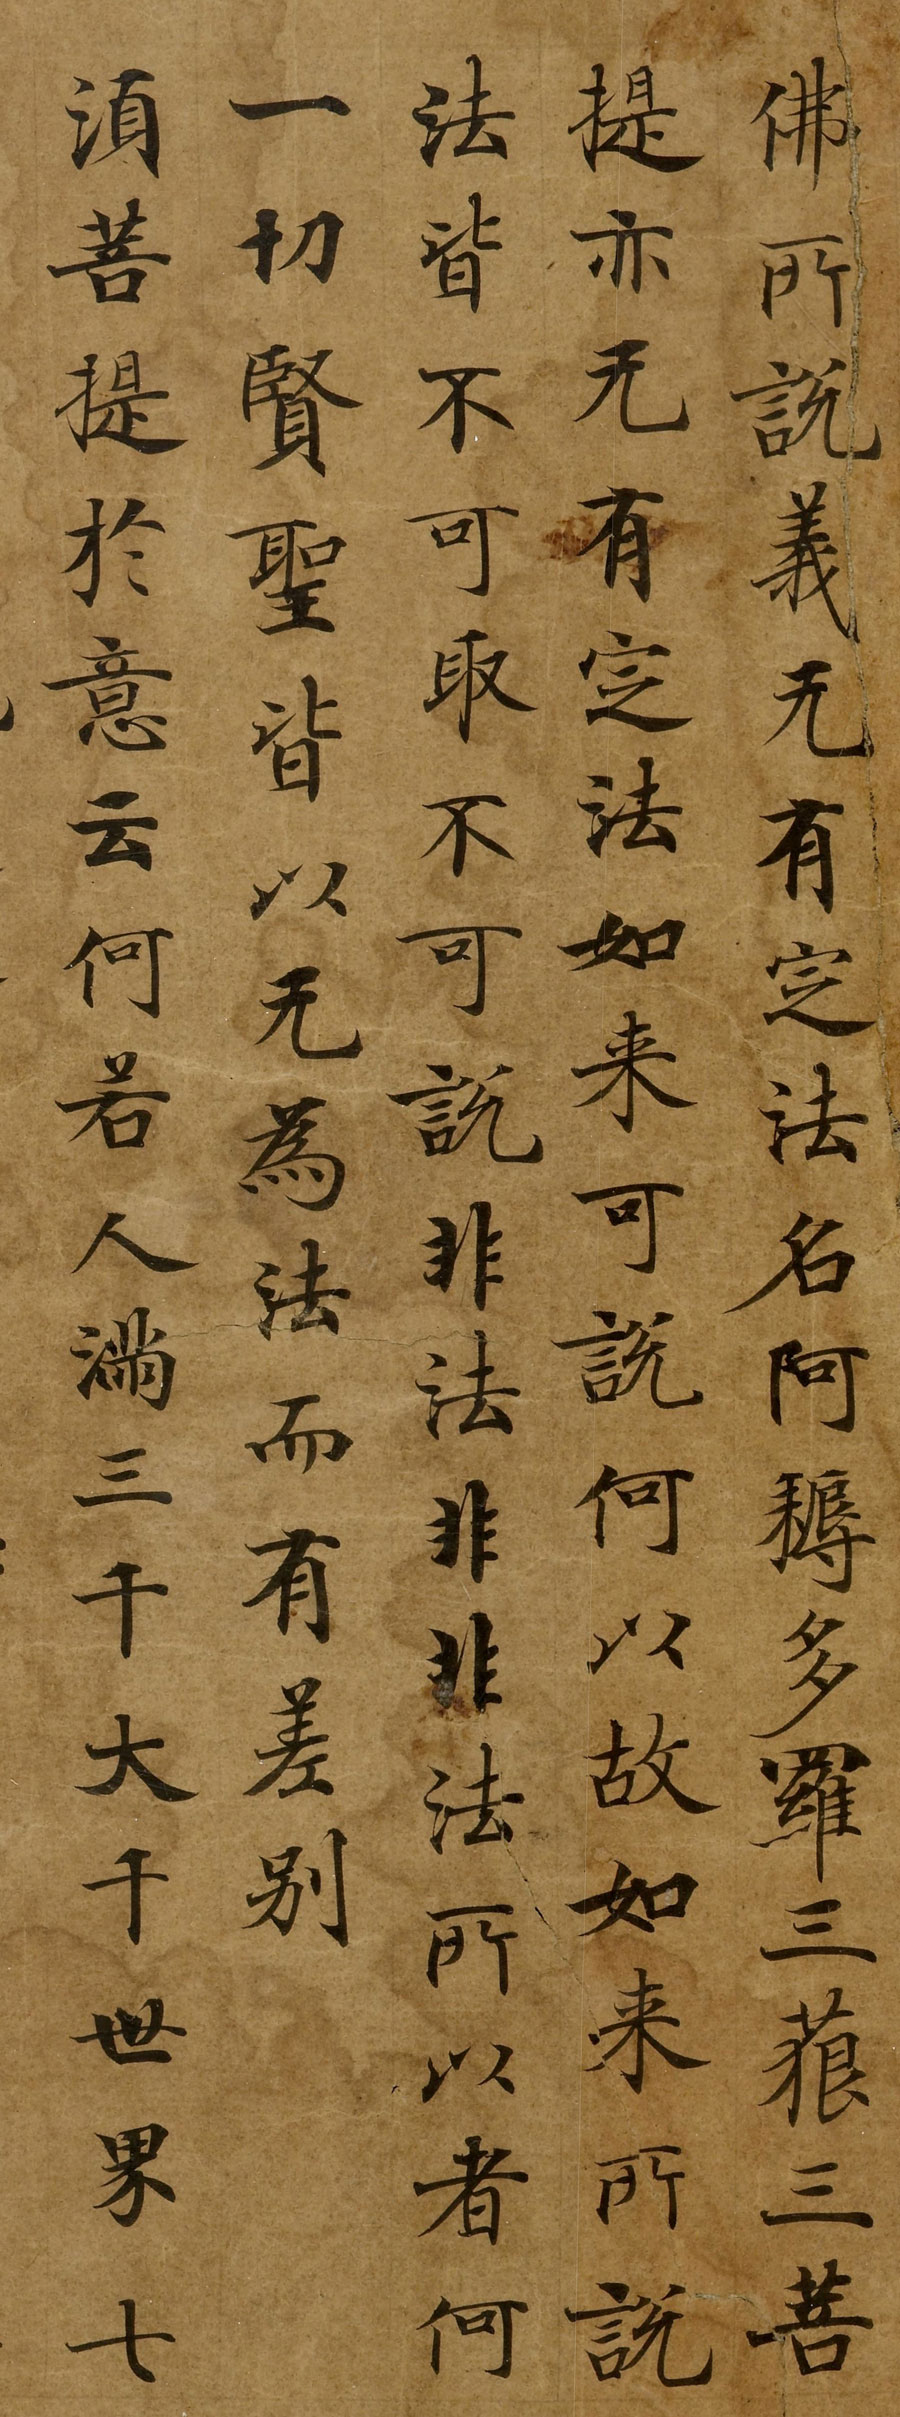 佛所說義无有定法名阿耨多羅三藐三菩
提亦无有定法如来可說何以故如来所說
法皆不可取不可說非法非非法所以者何
一切賢聖皆以无為法而有差别
湏菩提於意云何若人滿三千大千世界七